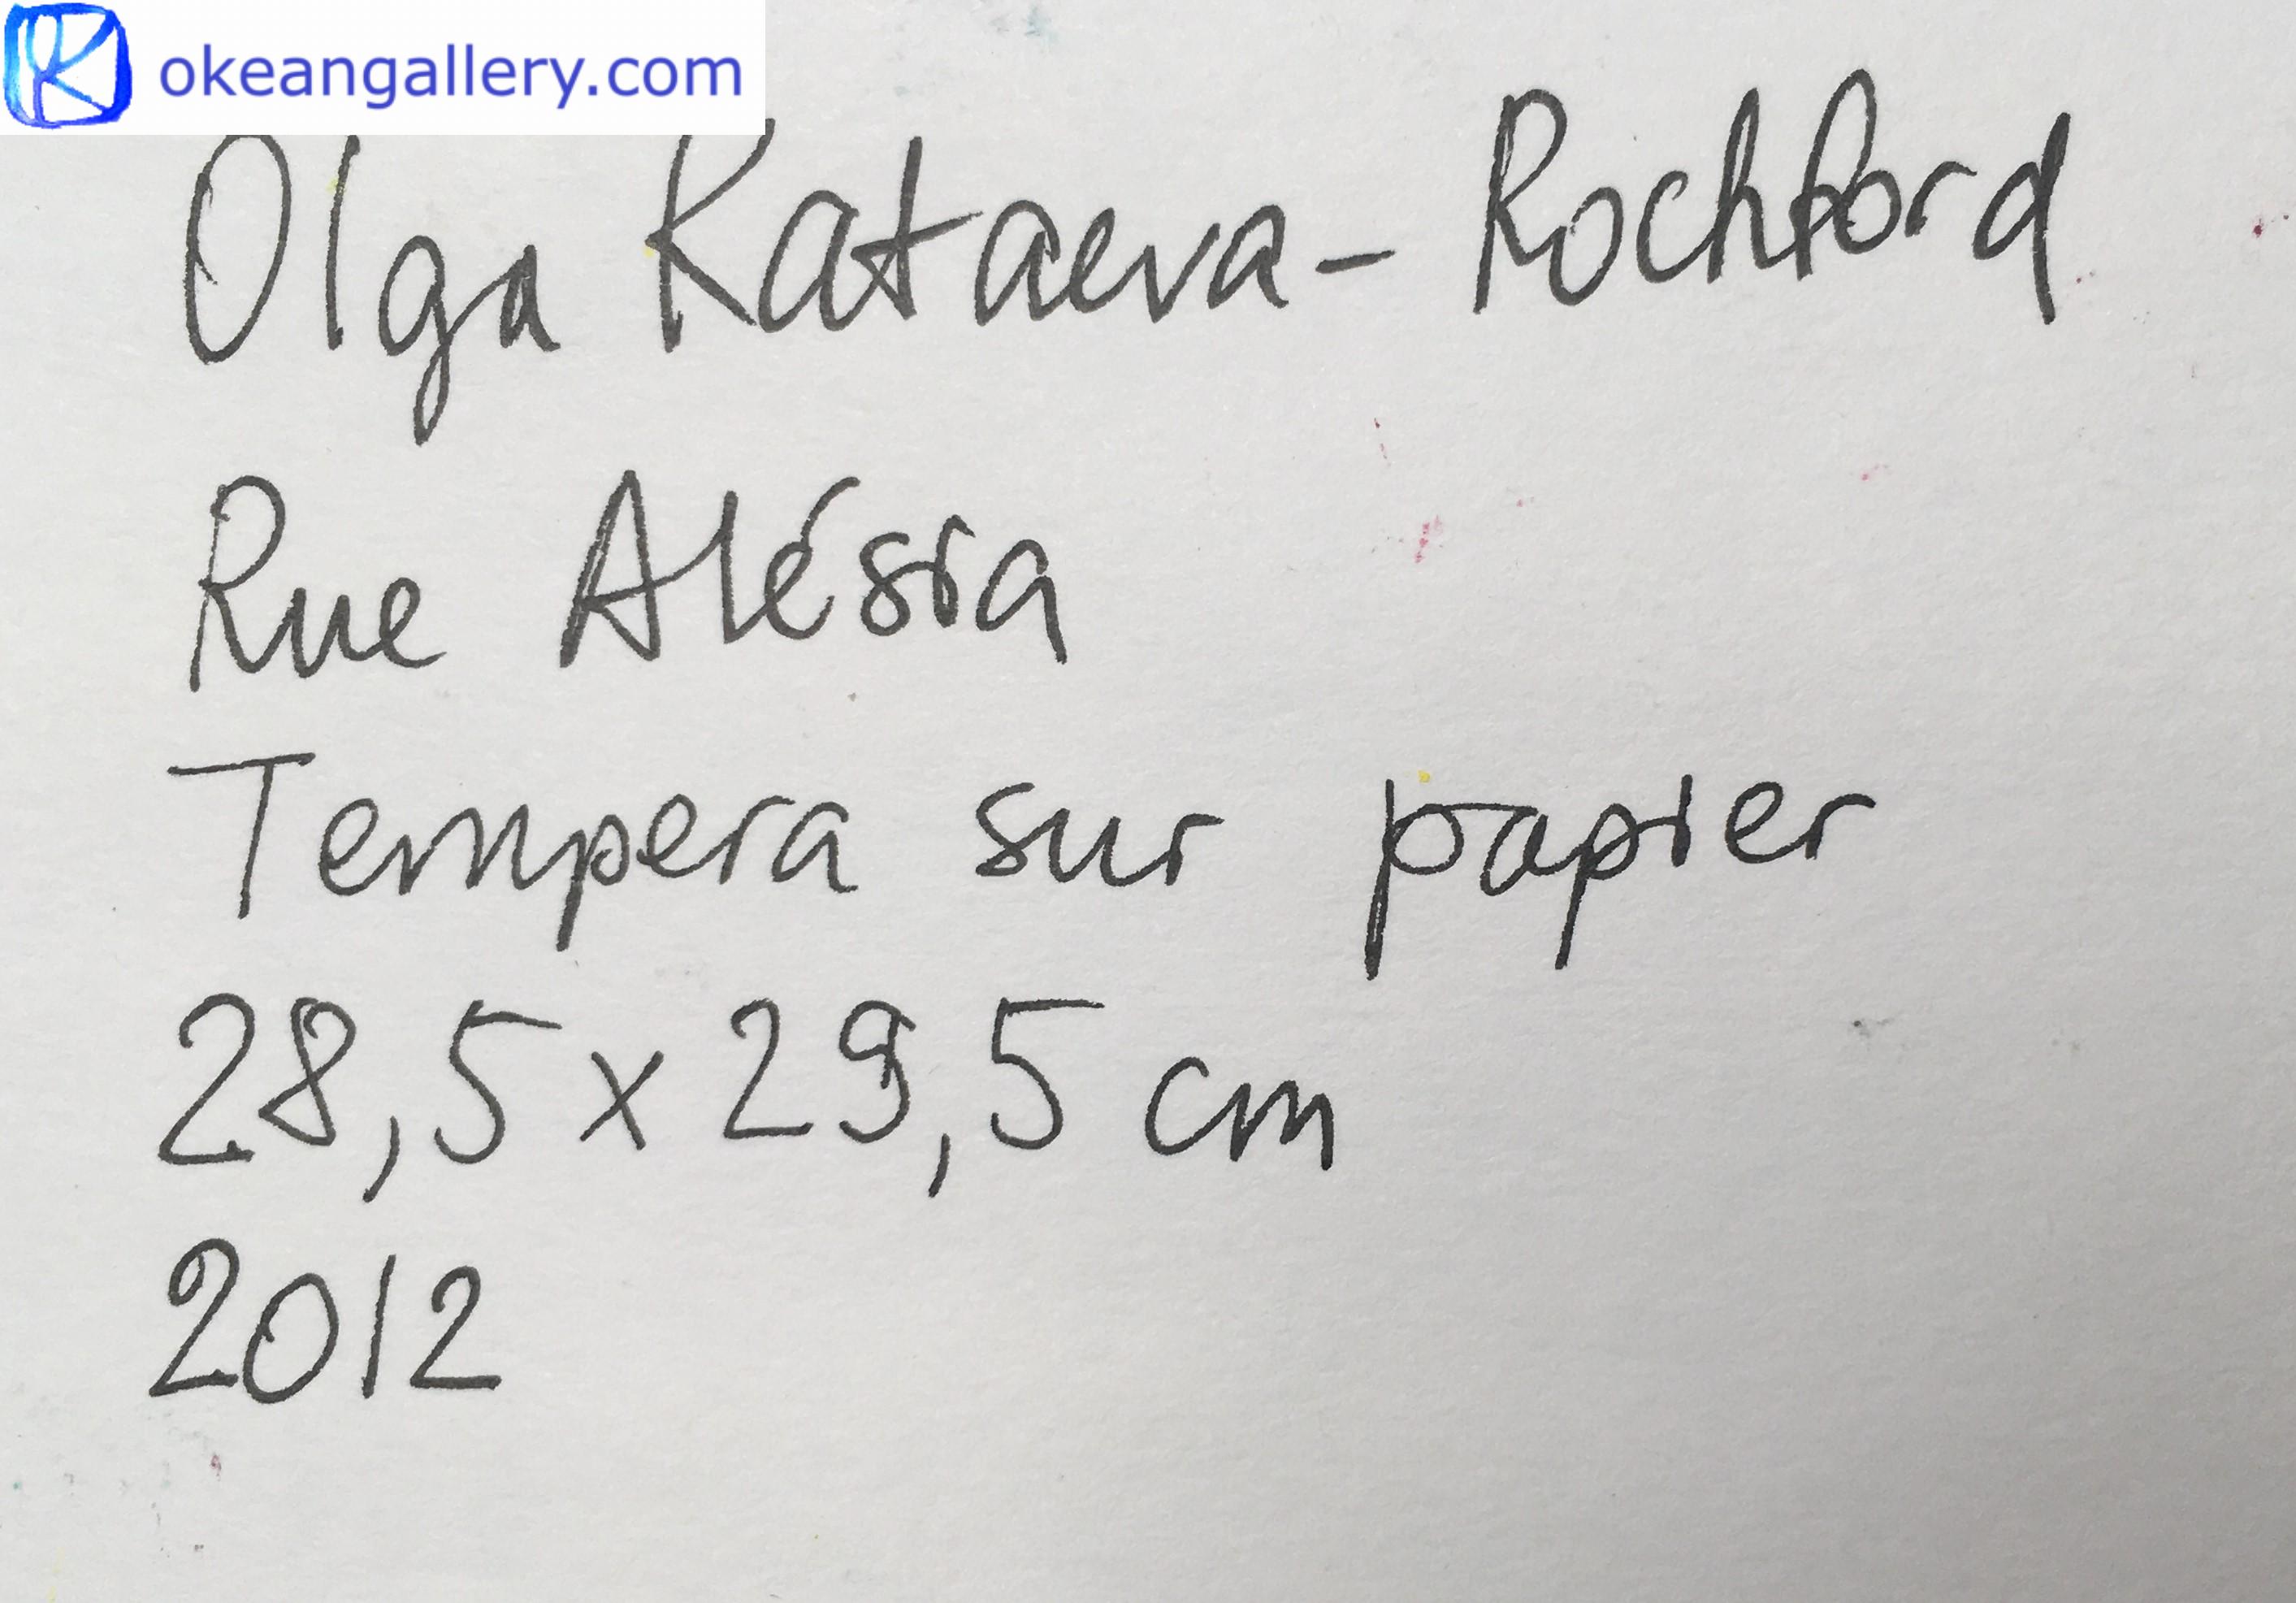 okeangallery.com
Olga Kataeva-Rochford
Rue Alésia
Tempera sur papier
28,5 x 29,5 cm
2012